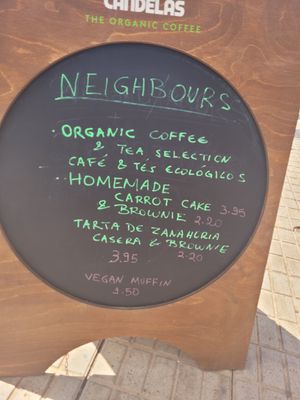 CANDELAS
THE ORGANIC COFFEE
NEIGHBOURS
· ORGANIC COFFEE
& TEA SELECTION
CAFÉ & TÉS ECOLÓGICOS
· HOMEMADE
CARROT CAKE 3.95
& BROWNIE 2.20
TARTA DE ZANAHORIA
CASERA & BROWNIE
3.95 2.20
VEGAN MUFFIN
2.50